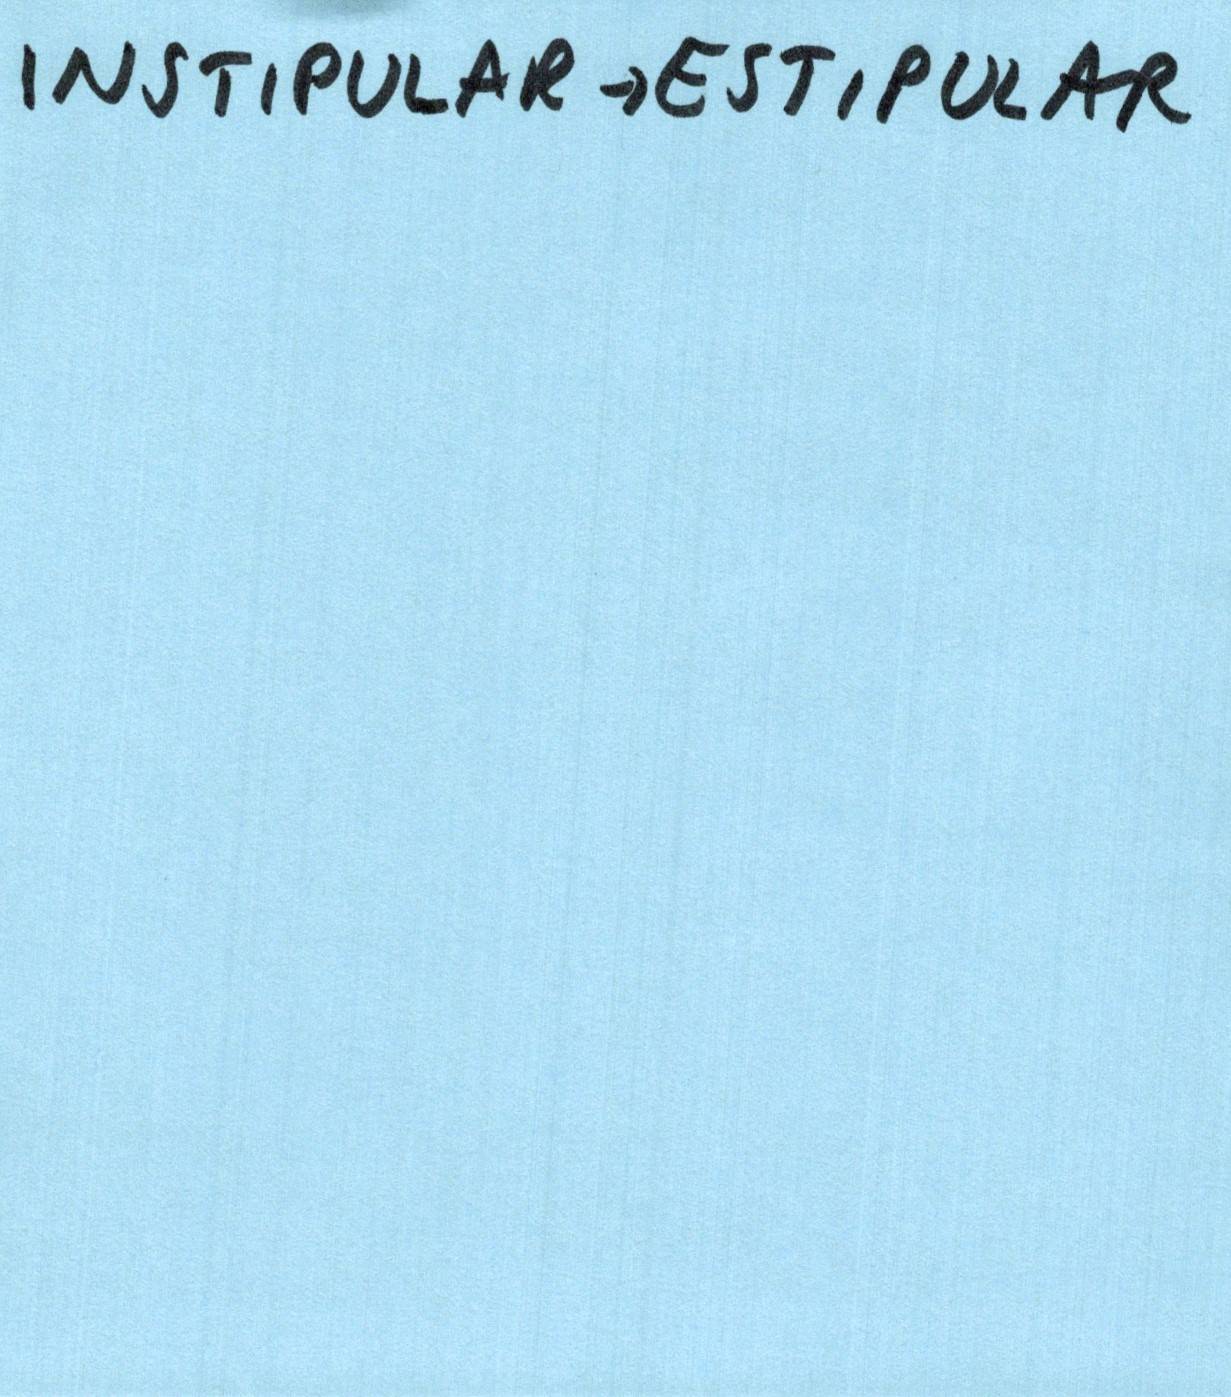 INSTIPULAR → ESTIPULAR